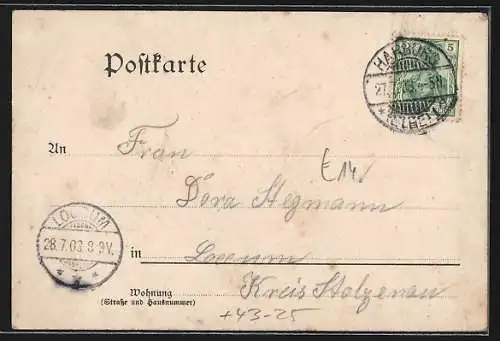 Postkarte
HARBURG
5
27.7.03
(ELBE)
An Frau
Dora Hegmann
LOCCUM
28.7.03. 8-9V.
in Loccum
Wohnung
(Straße und Hausnummer)
Kreis Stolzenau
+43-25